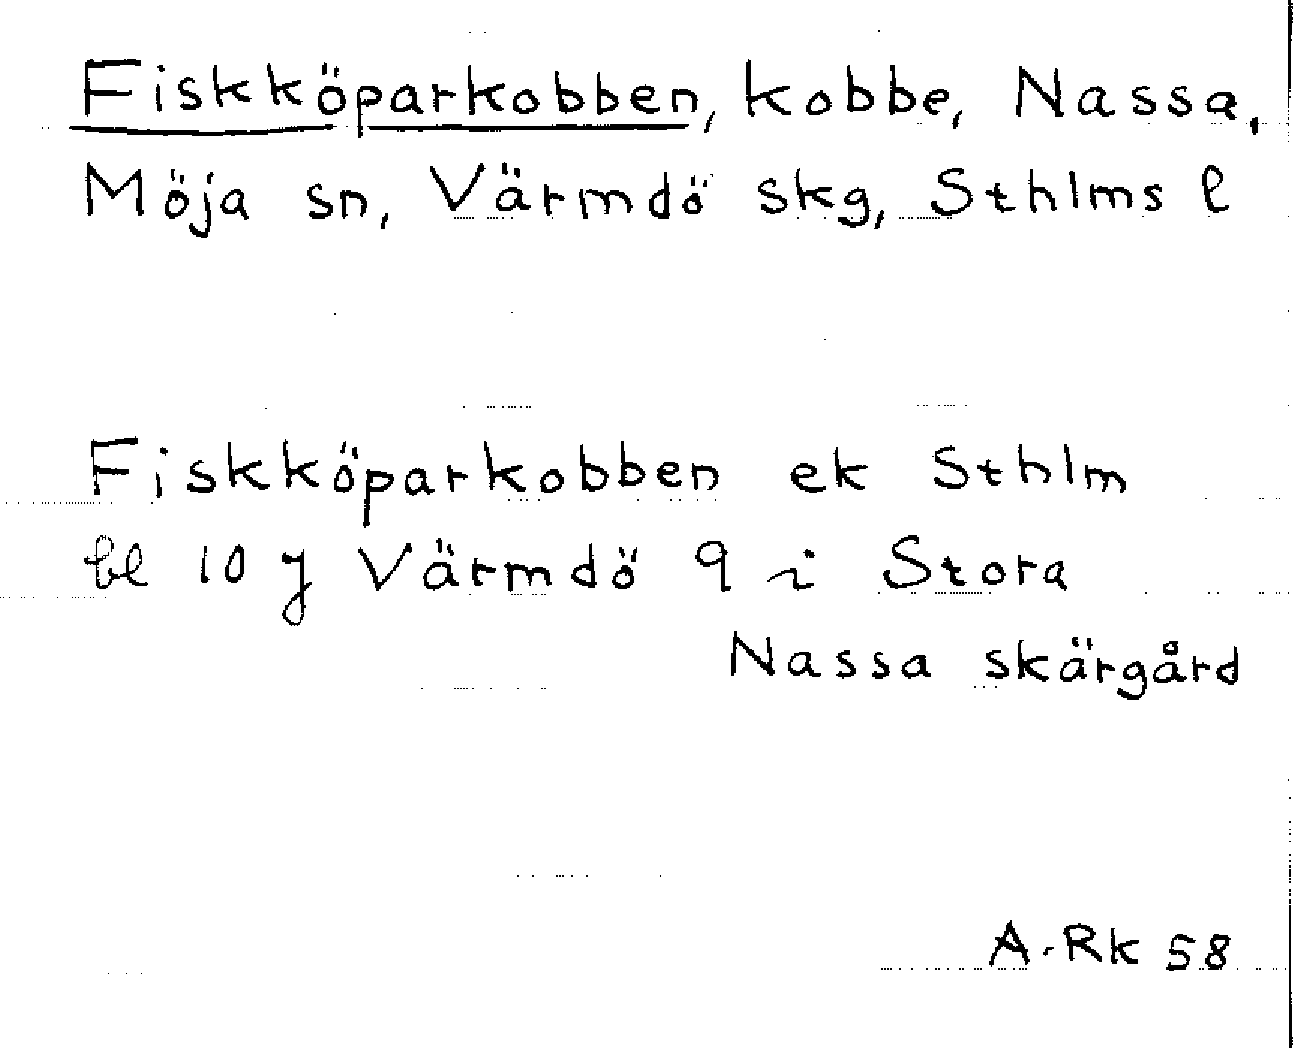 Fiskköparkobben, kobbe, Nassa,
Möja sn, Värmdö skg, Sthlms l
Fiskköparkobben ek Sthlm
bl 10 J Värmdö 9 i Stora
Nassa skärgård
A-Rk 58